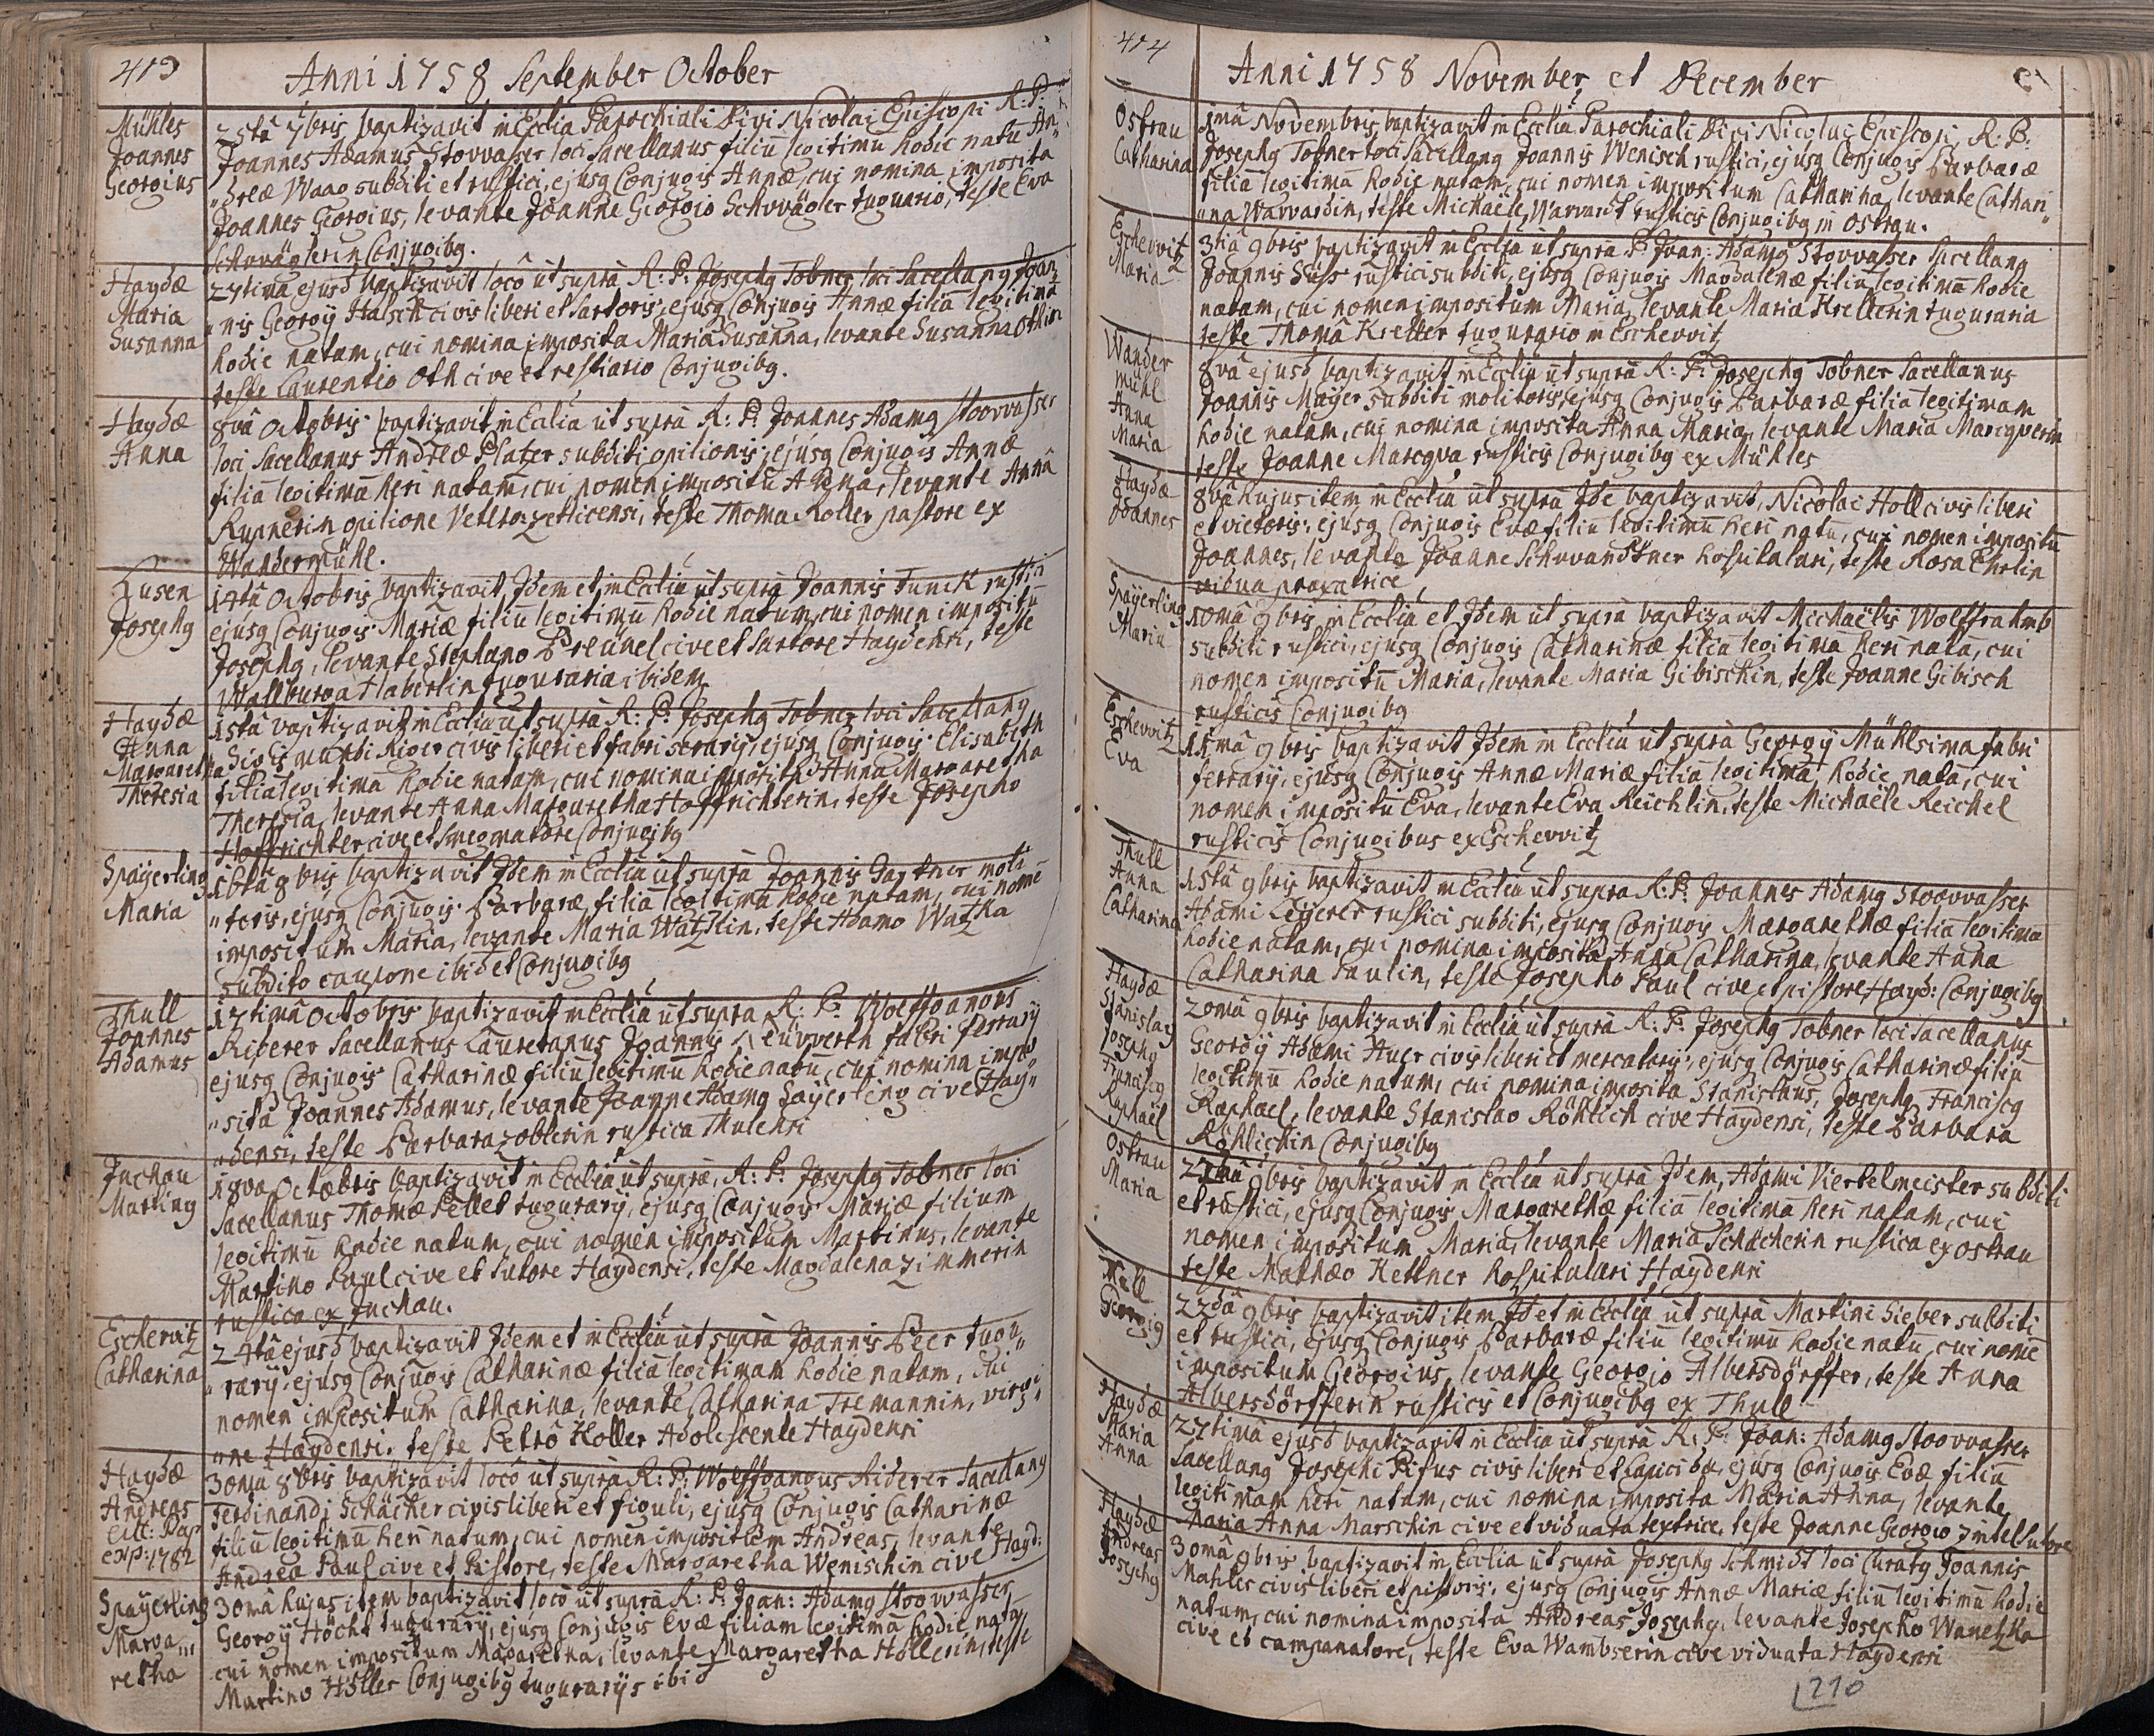 413
Anni 1758 September October
Mühles
Joannes
Georgius
25tâ 7bris baptizavit in Ecclia Parochiali Divi Nicolai Episcopi R: P:
Joannes Adamus Stovvasser loci Sacellanus filiū legitimū hodie natū An„
„dreæ Waag subditi et rustici, ejusq Conjugis Annæ, cui nomina imposita
Joannes Georgius, levante Joanne Georgio Schvvägler tugurario, teste Eva
Schvväglerin Conjugibq.
Haydæ
Maria
Susanna
27timâ ejusd baptizavit locô ut suprà R: P: Josephq Tobner loci Sacellanq Joan„
„nis Georgÿ Halsch civis liberi et Sartoris, ejusq Conjugis Annæ filiā legitimā
hodie natam, cui nomina imposita Maria Susanna, levante Susanna Othin
teste Laurentio Oth cive et restiario Conjugibq.
Haydæ
Anna
8vâ Octobris baptizavit in Ecclia ut suprà R: P: Joannes Adamq Stoovvasser
loci Sacellanus Andreæ Platzer subditi opilionis, ejusq Conjugis Annæ
filiā legitimā heri natam, cui nomen impositū Anna, levante Anna
Rupnerin opilione teste Thoma Roller pastore ex
Wandermühl.
Lusen
Josephq
14tâ Octobris baptizavit, Idem et in Ecclia ut suprà Joannis Tunck rustici
ejusq Conjugis Mariæ filiū legitimū hodie natum, cui nomen impositū
Josephq, levante Stephano Breünel cive et Sartore Haydensi, teste
Wallburga Haberlin tuguraria ibidem
Haydæ
Anna
Margaretha
Theresia
15tâ baptizavit in Ecclia ut suprà R: P: Josephq Tobner loci Sacellanq
Sigismundi Riger civis liberi et fabri serarÿ, ejusq Conjugis Elisabeth
filiā legitimā hodie natam, cui nomina imposita Anna Margaretha
Theresia, levante Anna Margaretha Hoffrichterin, teste Josepho
Hoffrichter cive et smegmatore Conjugibq
Spaÿerling
Maria
16tâ 8bris baptizavit Idem in Ecclia ut suprà Joannis Gartner moli„
„toris, ejusq Conjugis Barbaræ, filiā legitimā hodie natam, cui nome
impositum Maria, levante Maria Watzkin, teste Adamo Watzka
subdito caupone ibid et Conjugibq
Thull
Joannes
Adamus
17timâ Octobris baptizavit in Ecclia ut supra R: P: Wolffgangus
Riderer Sacellanus Lauretanus Joannis Neüvverth fabri ferrarÿ
ejusq Conjugis Catharinæ filiū legitimū hodie natū, cui nomina impo„
„sita Joannes Adamus, levante Joanne Adamq Saÿerling cive Haÿ„
„densi, teste Barbara Zoblerin rustica Thulensi
Juchau
Martinq
18va Octobris baptizavit in Ecclia ut supra, R: P: Josephq Tobner loci
Sacellanus Thomæ Pellet tugurarÿ, ejusq Conjugis Mariæ filium
legitimū hodie natum, cui nomen impositum Martinus, levante
Martino Paul cive et Sutore Haydensi, teste Magdalena Zimmerin
rustica ex Juchau.
Eschervitz
Catharina
24tâ ejusd baptizavit Idem et in Ecclia ut supra Joannis Beer tugu„
„rarÿ, ejusq Conjugis Catharinæ filiā legitimam hodie natam, cui
nomen impositum Catharina, levante Catharina Tremannin, virgi„
„ne Haydensi, teste Petro Koller Adolescente Haydensi
Haydæ
Andreas
exp: 1782
30ma 8bris baptizavit locô ut suprà R: P: Wolffgangus Riderer Sacellanq
Ferdinandi Schäcker civis liberi et figuli, ejusq Conjugis Catharinæ
filiū legitimū heri natum, cui nomen impositum Andreas, levante
Andrea Paul cive et Pistore, teste Margaretha Wenischin cive Hayd:
Spaÿerling
Marga„
retha
30mâ hujus item baptizavit locô ut suprà R: P: Joan: Adamq Stoovvasser
Georgÿ Höcht tugurarÿ, ejusq Conjugis Evæ filiam legitimā hodie natā
cui nomen impositum Margaretha, levante Margaretha Höllerin, teste
Martino Höller Conjugibq tugurarÿs ibid
414
Anni 1758 November et December
Ostrau
Catharina
1mâ Novembris baptizavit in Ecclia Parochiali Divi Nicolai Episcopi, R: P:
Josephq Tobner loci Sacellanq Joannis Wenisch rustici, ejusq Conjugis Barbaræ
filiā legitimā hodie natam, cui nomen impositum Catharina, levante Cathari„
„na Warvardin, teste Michaële Warvardt rusticis Conjugibq in Ostrau.
Eschevvitz
Maria
3tiâ 9bris baptizavit in Ecclia ut suprà P: Joan: Adamq Stovvasser Sacellanq
Joannis Süss rustici subditi, ejusq Conjugis Magdalenæ filiā legitimā hodie
natam, cui nomen impositum Maria, levante Maria Krellerin tuguraria
teste Thoma Kreller tugurario in Eschevvitz
Wander
mühl
Anna
Maria
8vâ ejusd baptizavit in Ecclia ut suprà R: P: Josephq Tobner Sacellanus
Joannis Maÿer subditi molitoris, ejusq Conjugis Barbaræ filiā legitimam
hodie natam, cui nomina imposita Anna Maria, levante Maria Marcqverin
teste Joanne Marcqva rusticis Conjugibq ex Mühles
Haydæ
Joannes
8vâ hujus item in Ecclia ut suprà Ide baptizavit, Nicolai Holl civis liberi
et vietoris, ejusq Conjugis Evæ filiū legitimū heri natū, cui nomen impositū
Joannes, levante Joanne Schvvandtner hospitalari, teste Rosa Ehrlin
vidua praxatrice
Spaÿerling
Maria
10mâ 9bris in Ecclia et Idem ut suprà baptizavit Michaëlis Wolffrahmb
subditi rustici, ejusq Conjugis Catharinæ filiā legitimā heri natā, cui
nomen impositū Maria, levante Maria Gibischin, teste Joanne Gibisch
rusticis Conjugibq
Eschevvitz
Eva
11mâ 9bris baptizavit Idem in Ecclia ut suprà Georgÿ Mühlsima fabri
ferrarÿ, ejusq Conjugis Annæ Mariæ filiā legitimā hodie natā, cui
nomen impositū Eva, levante Eva Reichlin, teste Michaële Reichel
rusticis Conjugibus ex Eschevvitz
Thull
Anna
Catharina
15tâ 9bris baptizavit in Ecclia ut supra R: P: Joannes Adamq Stoovvasser
Adami Leÿerer rustici subditi, ejusq Conjugis Margarethæ filiā legitimā
hodie natam, cui nomina imposita Anna Catharina, levante Anna
Catharina Paulin, teste Josepho Paul cive et pistore Hayd: Conjugibq
Haydæ
Stanislaq
Josephq
Franciscq
Raphaël
20mâ 9bris baptizavit in Ecclia ut suprà R: P: Josephq Tobner loci Sacellanus
Georgÿ Adami Auer civis liberi et mercatoris, ejusq Conjugis Catharinæ filiū
legitimū hodie natum, cui nomina imposita Stanislaus, Josephq, Franciscq
Raphael, levante Stanislao Röhlich cive Haydensi, teste Barbara
Röhlichin Conjugibq
Ostrau
Maria
9bris baptizavit in Ecclia ut suprà Idem, Adami Viertelmeister subditi
et rustici, ejusq Conjugis Margarethæ filiā legitimā heri natam, cui
nomen impositum Maria, levante Maria Schächerin rustica ex Ostrau
teste Mathæo Kettner hospitalari Haydensi
Mell
Georgiq
22dâ 9bris baptizavit item Id et in Ecclia ut suprà Martini Sieber subditi
et rustici, ejusq Conjugis Barbaræ filiū legitimū hodie natū, cui nome
impositum Georgius, levante Georgio Albersdörffer, teste Anna
Albersdörfferin rusticis et Conjugibq ex Thull
Haydæ
Maria
Anna
27timâ ejusd baptizavit in Ecclia ut suprà R: P: Joan: Adamq Stoovvasser
Sacellanq Josephi Pifus civis liberi et ejusq Conjugis Evæ filiū
legitimam heri natam, cui nomina imposita Maria Anna, levante
Maria Anna Marschin cive et viduata textrice, teste Joanne Georgio Zintel Sutore
Haydæ
Andreas
Josephq
30mâ 9bris baptizavit in Ecclia ut suprà Josephq Schmidt loci Curatq Joannis
Mahler civis liberi et pistoris, ejusq Conjugis Annæ Mariæ filiū legitimū hodie
natum, cui nomina imposita Andreas Josephq, levante Josepho Wanetzka
cive et campanatore, teste Eva Wambserin cive viduata Haydensi
210